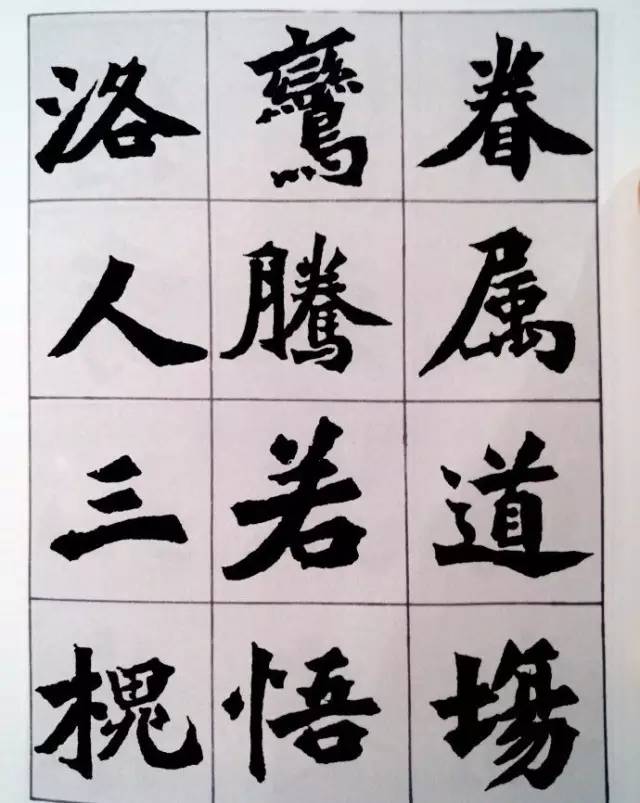 眷属道場
鸞騰若悟
洛人三槐